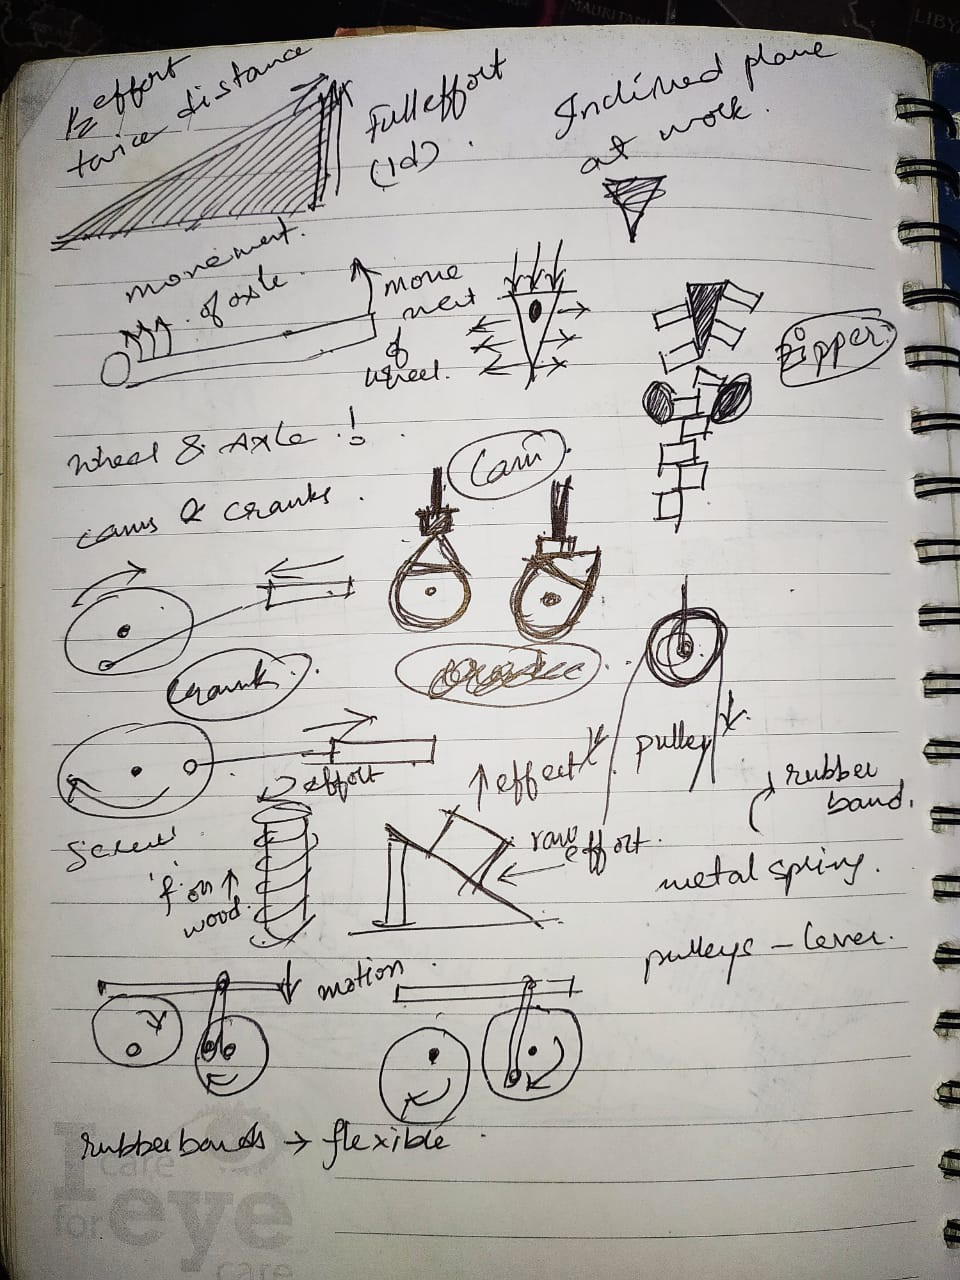 MAURITANIA
LIBY
1/2 effort
twice distance
Full effort
(1d).
Inclined plane
at work.
movement.
of axle.
move
ment
of
wheel.
zipper.
Wheel & Axle!
cams & cranks.
Cam
crank.
pulley
effort
↑ effect
raw
effort.
rubber
band.
Screw
on
wood.
metal spring.
pulleys – lever.
motion.
rubberbands → flexible.
I
care
for eye
care